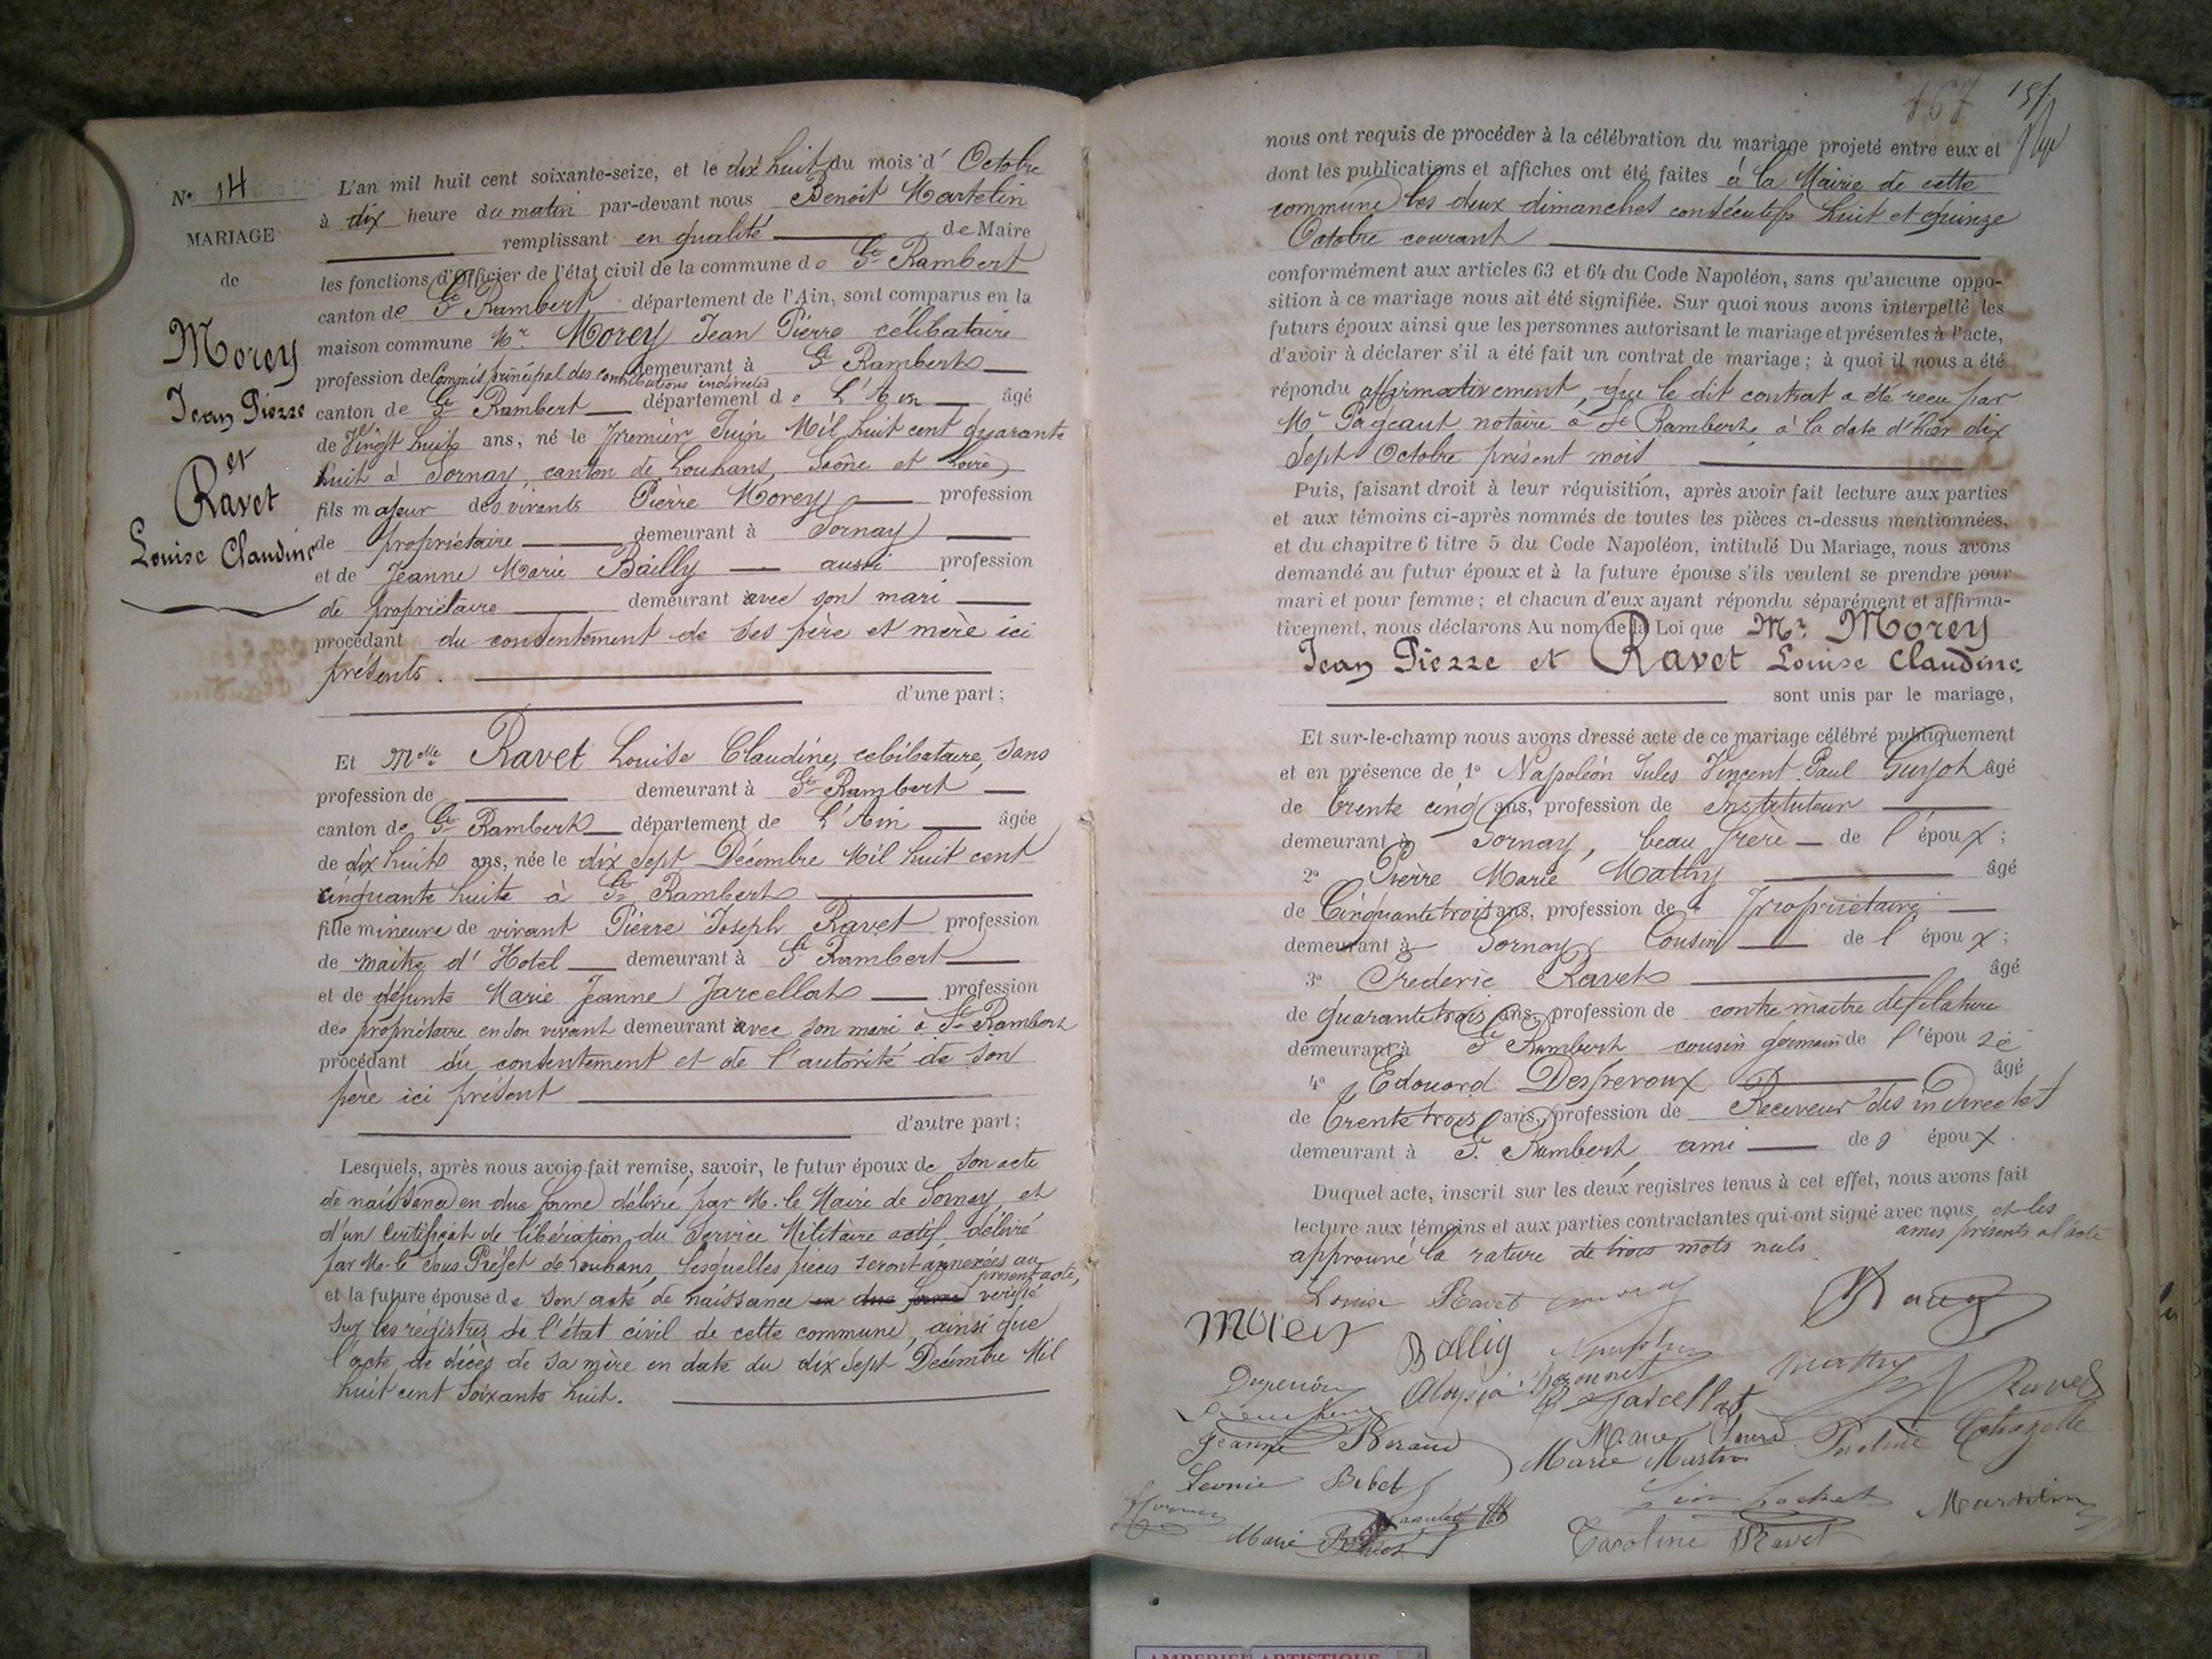 N° 14
MARIAGE
de
Morey
Jean Pierre
et
Ravet
Louise Claudine
L'an mil huit cent soixante-seize, et le dix huit du mois d' Octobre
à dix heure du matin par-devant nous Benoit Martelin
remplissant en qualité de Maire
les fonctions d'Officier de l'état civil de la commune de St Rambert
canton de St Rambert département de l'Ain, sont comparus en la
maison commune Mr Morey Jean Pierre célibataire
profession de Commis principal des contributions indirectes demeurant à St Rambert
canton de St Rambert département de L'Ain âgé
de Vingt huit ans, né le premier Juin Mil huit cent quarante
huit à Sornay, canton de Louhans, Saône et Loire
fils majeur des vivants Pierre Morey profession
de propriétaire demeurant à Sornay
et de Jeanne Marie Bailly aussi profession
de propriétaire demeurant avec son mari
procédant du consentement de ses père et mère ici
présents.
d'une part;
Et Melle Ravet Louise Claudine, celibataire, sans
profession de demeurant à St Rambert
canton de St Rambert département de L'Ain âgée
de dix huit ans, née le dix sept Décembre Mil huit cent
cinquante huite à St Rambert
fille mineure de vivant Pierre Joseph Ravet profession
de maitre d'Hotel demeurant à St Rambert
et de défunte Marie Jeanne Jarcellat profession
de propriétaire en son vivant demeurant avec son mari à St Rambert
procédant du consentement et de l'autorité de son
père ici présent
d'autre part;
Lesquels, après nous avoir fait remise, savoir, le futur époux de son acte
de naissance en due forme délivré par M. le Maire de Sornay, et
d'un certificat de libération du Service Militaire actif délivré
par Mr le Sous Préfet de Louhans, lesquelles pièces seront annexées au
présent acte,
et la future épouse de son acte de naissance en due forme verifié
sur les régistres de l'état civil de cette commune, ainsi que
l'acte de décès de sa mère en date du dix sept Décembre Mil
huit cent soixante huit.
167
nous ont requis de procéder à la célébration du mariage projeté entre eux et
dont les publications et affiches ont été faites à la Mairie de cette
commune les deux dimanches consécutifs huit et quinze
Octobre courant
conformément aux articles 63 et 64 du Code Napoléon, sans qu'aucune oppo-
sition à ce mariage nous ait été signifiée. Sur quoi nous avons interpellé les
futurs époux ainsi que les personnes autorisant le mariage et présentes à l'acte,
d'avoir à déclarer s'il a été fait un contrat de mariage; à quoi il nous a été
répondu affirmativement, que le dit contrat a été reçu par
Mr Pageaut notaire à St Rambert, à la date d'hier dix
Sept Octobre présent mois
Puis, faisant droit à leur réquisition, après avoir fait lecture aux parties
et aux témoins ci-après nommés de toutes les pièces ci-dessus mentionnées,
et du chapitre 6 titre 5 du Code Napoléon, intitulé Du Mariage, nous avons
demandé au futur époux et à la future épouse s'ils veulent se prendre pour
mari et pour femme; et chacun d'eux ayant répondu séparément et affirma-
tivement, nous déclarons Au nom de la Loi que Mr Morey
Jean Pierre et Ravet Louise Claudine
sont unis par le mariage,
Et sur-le-champ nous avons dressé acte de ce mariage célébré publiquement
et en présence de 1° Napoléon Jules Vincent Paul Guyot âgé
de trente cinq ans, profession de Instituteur
demeurant à Sornay, beau frère de l'époux;
2° Pierre Marie Mathy âgé
de Cinquante trois ans, profession de propriétaire
demeurant à Sornay Cousin de l'époux;
3° Frederic Ravet âgé
de quarante trois ans, profession de contre maitre de filature
demeurant à St Rambert cousin germain de l'épouse
4° Edouard Desperoux âgé
de trente trois ans, profession de Receveur des indirectes
demeurant à St Rambert ami de l'époux.
Duquel acte, inscrit sur les deux registres tenus à cet effet, nous avons fait
lecture aux témoins et aux parties contractantes qui ont signé avec nous et les
amis présents a l'acte
approuvé la rature de trois mots nuls.
Louise Ravet
Morey
Ballig
Mathy
Ravet
Aloysia
Jarcellat
Jeanne Beraud
Marie
Marie
Chazelle
Leonie Bibet
Léon
Martelin
Marie
Caroline Ravet